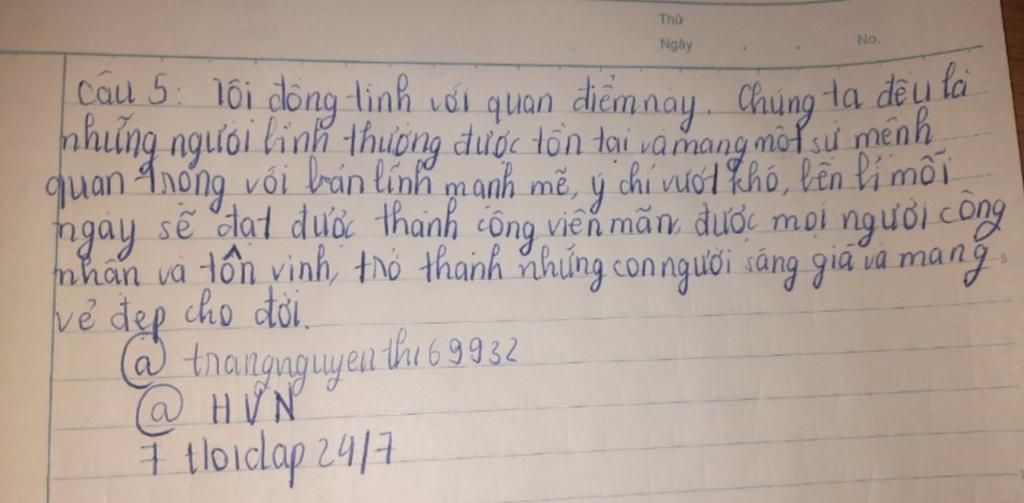 Thứ
Ngày . . No.
Câu 5: Tôi đồng tình với quan điểm này. Chúng ta đều là
những người bình thường được tồn tại và mang một sứ mệnh
quan trọng với bản lĩnh mạnh mẽ, ý chí vượt khó, bền bỉ mỗi
ngày sẽ đạt được thành công viên mãn, được mọi người công
nhận và tôn vinh, trở thành những con người sáng giá và mang
vẻ đẹp cho đời.
@ trangnguyenthi69932
@ HVN
7 tloidap 24/7